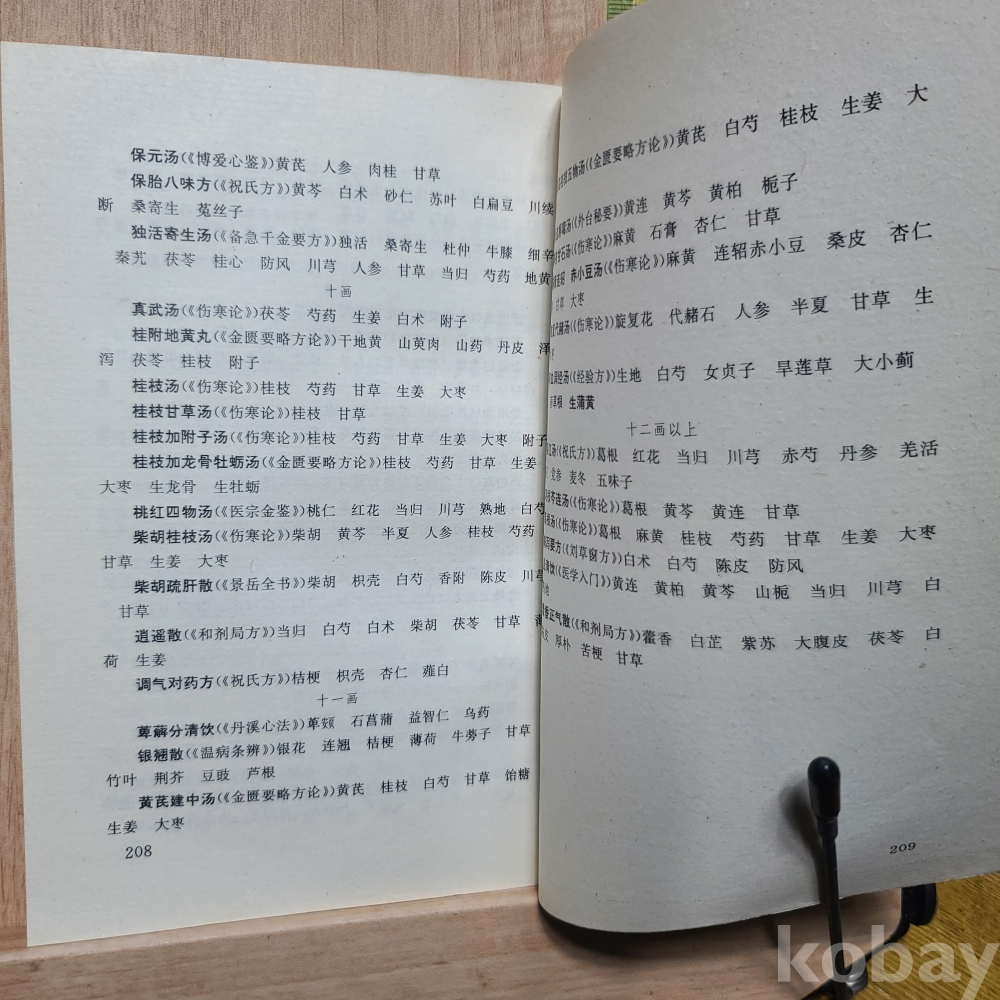 保元汤(《博爱心鉴》)黄芪 人参 肉桂 甘草
保胎八味方(《祝氏方》)黄芩 白术 砂仁 苏叶 白扁豆 川续
断 桑寄生 菟丝子
独活寄生汤(《备急千金要方》)独活 桑寄生 杜仲 牛膝 细辛
秦艽 茯苓 桂心 防风 川芎 人参 甘草 当归 芍药 地黄
十画
真武汤(《伤寒论》)茯苓 芍药 生姜 白术 附子
桂附地黄丸(《金匮要略方论》)干地黄 山萸肉 山药 丹皮 泽
泻 茯苓 桂枝 附子
桂枝汤(《伤寒论》)桂枝 芍药 甘草 生姜 大枣
桂枝甘草汤(《伤寒论》)桂枝 甘草
桂枝加附子汤(《伤寒论》)桂枝 芍药 甘草 生姜 大枣 附子
桂枝加龙骨牡蛎汤(《金匮要略方论》)桂枝 芍药 甘草 生姜
大枣 生龙骨 生牡蛎
桃红四物汤(《医宗金鉴》)桃仁 红花 当归 川芎 熟地 白芍
柴胡桂枝汤(《伤寒论》)柴胡 黄芩 半夏 人参 桂枝 芍药
甘草 生姜 大枣
柴胡疏肝散(《景岳全书》)柴胡 枳壳 白芍 香附 陈皮 川芎
甘草
逍遥散(《和剂局方》)当归 白芍 白术 柴胡 茯苓 甘草 薄
荷 生姜
调气对药方(《祝氏方》)桔梗 枳壳 杏仁 薤白
十一画
萆薢分清饮(《丹溪心法》)萆薢 石菖蒲 益智仁 乌药
银翘散(《温病条辨》)银花 连翘 桔梗 薄荷 牛蒡子 甘草
竹叶 荆芥 豆豉 芦根
黄芪建中汤(《金匮要略方论》)黄芪 桂枝 白芍 甘草 饴糖
生姜 大枣
208
五物汤(《金匮要略方论》)黄芪 白芍 桂枝 生姜 大
毒汤(《外台秘要》)黄连 黄芩 黄柏 栀子
石汤(《伤寒论》)麻黄 石膏 杏仁 甘草
赤小豆汤(《伤寒论》)麻黄 连轺赤小豆 桑皮 杏仁
甘草 大枣
代赭汤(《伤寒论》)旋复花 代赭石 人参 半夏 甘草 生
调经汤(《经验方》)生地 白芍 女贞子 旱莲草 大小蓟
草根 生蒲黄
十二画以上
汤(《祝氏方》)葛根 红花 当归 川芎 赤芍 丹参 羌活
党参 麦冬 五味子
芩连汤(《伤寒论》)葛根 黄芩 黄连 甘草
汤(《伤寒论》)葛根 麻黄 桂枝 芍药 甘草 生姜 大枣
要方(《刘草窗方》)白术 白芍 陈皮 防风
清饮(《医学入门》)黄连 黄柏 黄芩 山栀 当归 川芎 白
正气散(《和剂局方》)藿香 白芷 紫苏 大腹皮 茯苓 白
厚朴 苦梗 甘草
209
kobay